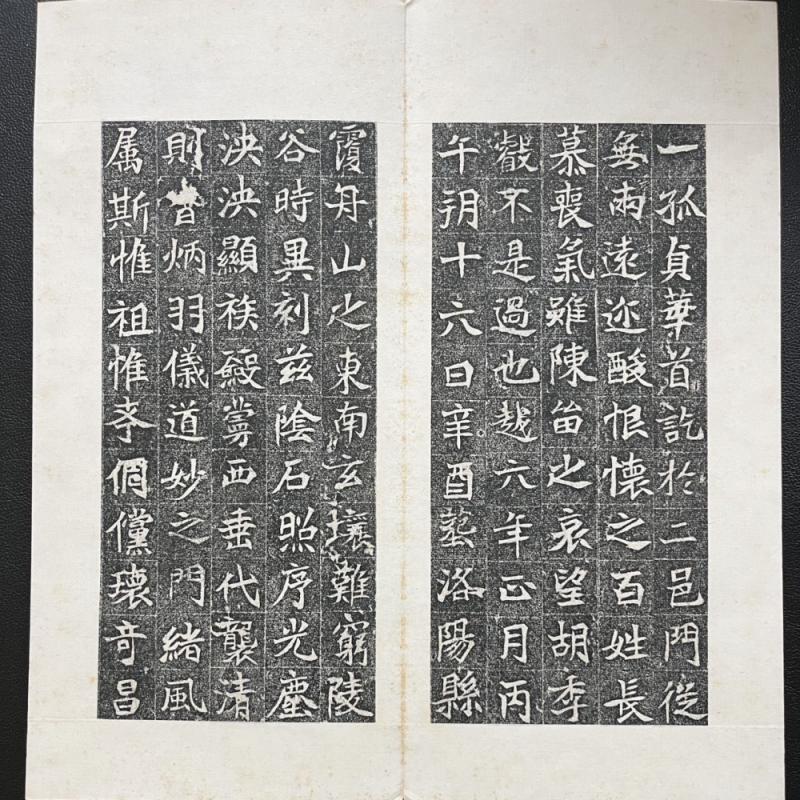 一孤貞華首訖於二邑門從
無雨遠迩酸恨懷之百姓長
慕喪氣雖陳留之哀望胡季
叡不是過也越六年正月丙
午朔十六日辛酉葬洛陽縣
覆舟山之東南玄壤難窮陵
谷時異刻茲陰石照序光塵
泱泱顯族殿嘗西垂代襲清
則炳羽儀道妙之門緒風
属斯惟祖惟孝倜儻瓌奇昌